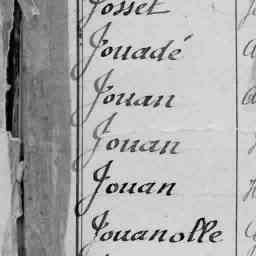 Josset
Jouadé
Jouan
Jouan
Jouan
Jouanolle